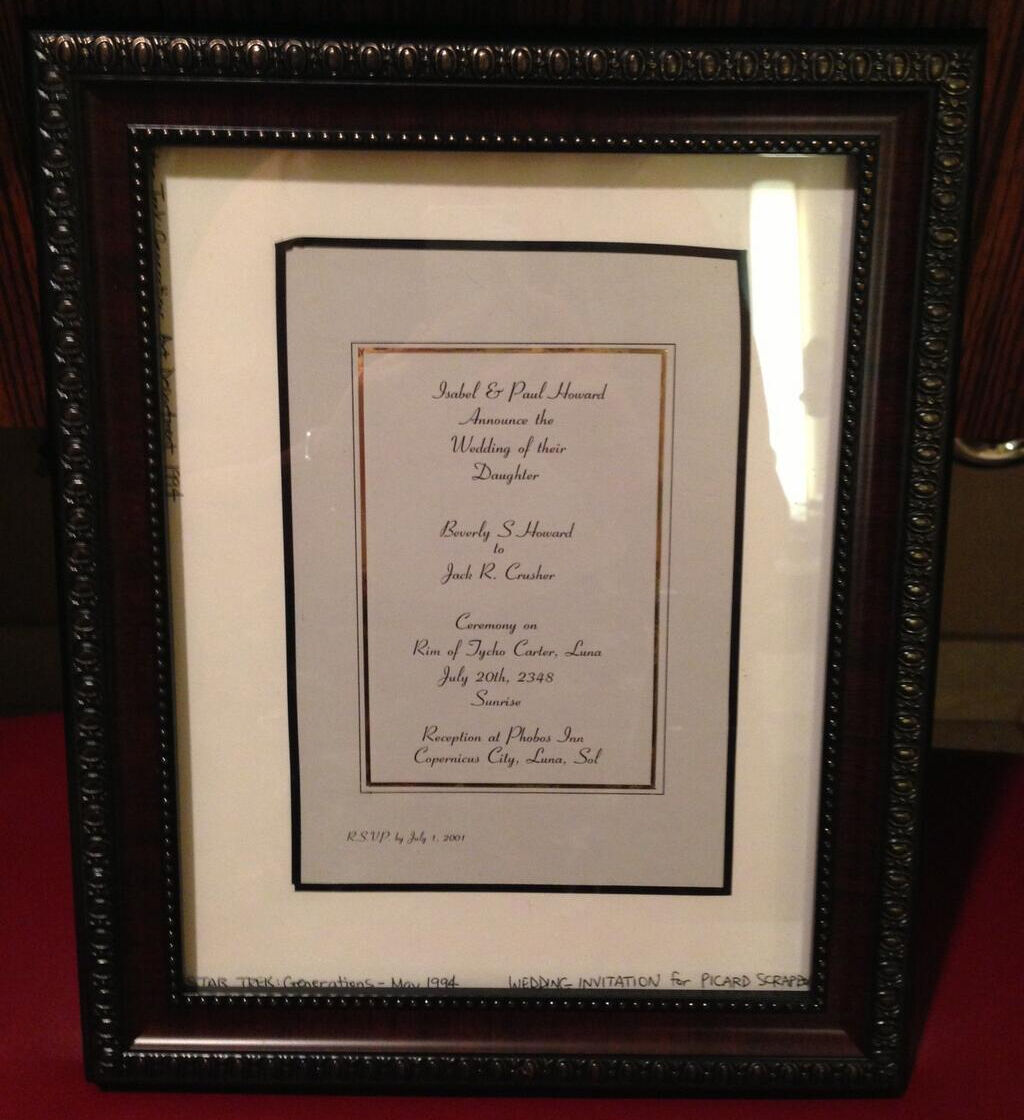 Isabel & Paul Howard
Announce the
Wedding of their
Daughter
Beverly S Howard
to
Jack R. Crusher
Ceremony on
Rim of Tycho Carter, Luna
July 20th, 2348
Sunrise
Reception at Phobos Inn
Copernicus City, Luna, Sol
R.S.V.P. by July 1, 2001
STAR TREK: Generations - May 1994 WEDDING INVITATION for PICARD SCRAPB
1994